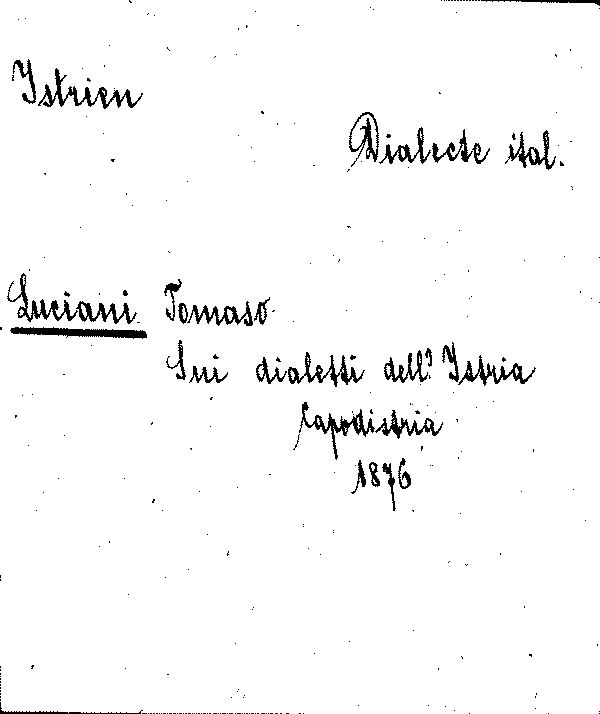 Istrien
Dialecte ital.
Luciani Tomaso
Sui dialetti dell' Istria
Capodistria
1876